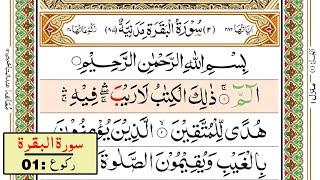 (٢) سُوْرَةُ الْبَقَرَةِ مَدَنِيَّةٌ (٨٧)
بِسْمِ اللهِ الرَّحْمٰنِ الرَّحِيْمِ
الٓمّٓ ذٰلِكَ الْكِتٰبُ لَا رَيْبَ فِيْهِ
هُدًى لِّلْمُتَّقِيْنَ الَّذِيْنَ يُؤْمِنُوْنَ
بِالْغَيْبِ وَيُقِيْمُوْنَ الصَّلٰوةَ
سورة البقرة
ركوع :01